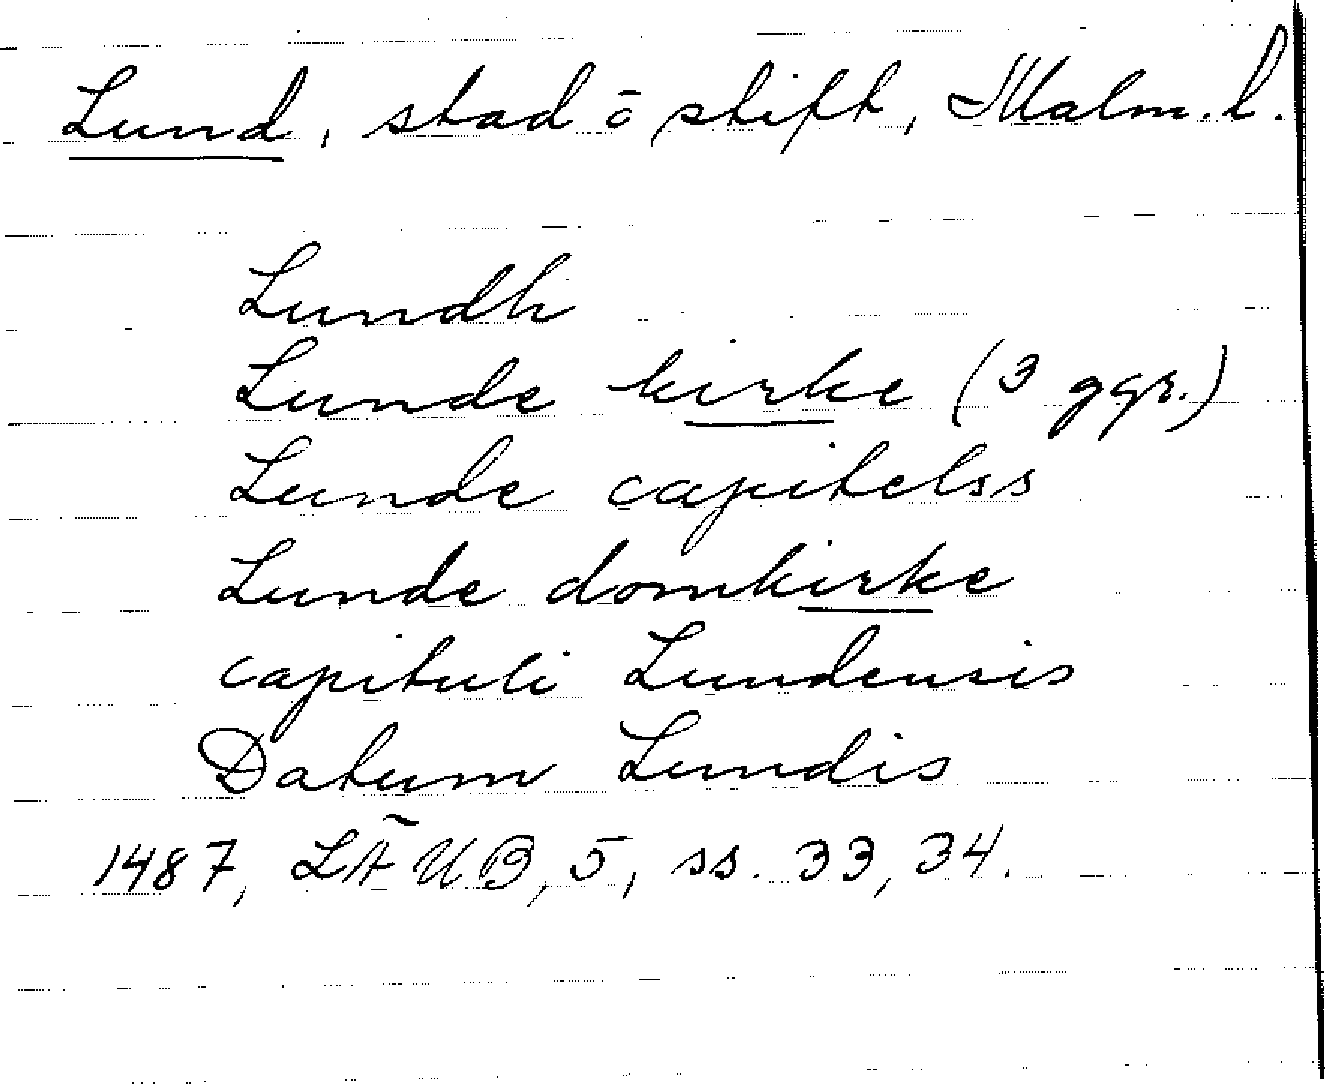 Lund, stad o stift, Malm. l.
Lundh
Lunde kirke (3 ggr.)
Lunde capitelss
Lunde domkirke
capituli Lundensis
Datum Lundis
1487, LÄUB, 5, ss. 33, 34.